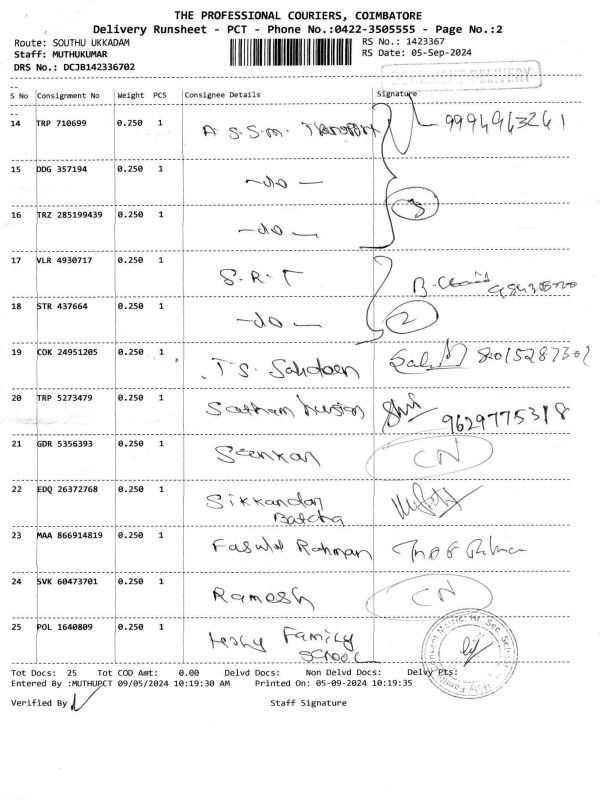 THE PROFESSIONAL COURIERS, COIMBATORE
Delivery Runsheet - PCT - Phone No.:0422-3505555 - Page No.:2
Route: SOUTHU UKKADAM RS No.: 1423367
Staff: MUTHUKUMAR RS Date: 05-Sep-2024
DRS No.: DCJB142336702
DELIVERY
S No Consignment No Weight PCS Consignee Details Signature
14 TRP 710699 0.250 1 A S.S.M. Transport 9994963261
15 DDG 357194 0.250 1 -do-
16 TRZ 285199439 0.250 1 -do- 3
17 VLR 4930717 0.250 1 S.R.T
18 STR 437664 0.250 1 -do- 2
19 COK 24951205 0.250 1 T.S. 8015287302
20 TRP 5273479 0.250 1 9629775318
21 GDR 5356393 0.250 1 CN
22 EDQ 26372768 0.250 1 Sikkandar
Batcha
23 MAA 866914819 0.250 1 Rahman
24 SVK 60473701 0.250 1 Ramesh CN
25 POL 1640809 0.250 1 Family
School
Tot Docs: 25 Tot COD Amt: 0.00 Delvd Docs: Non Delvd Docs: Delvy Pts:
Entered By :MUTHUPCT 09/05/2024 10:19:30 AM Printed On: 05-09-2024 10:19:35
Verified By Staff Signature